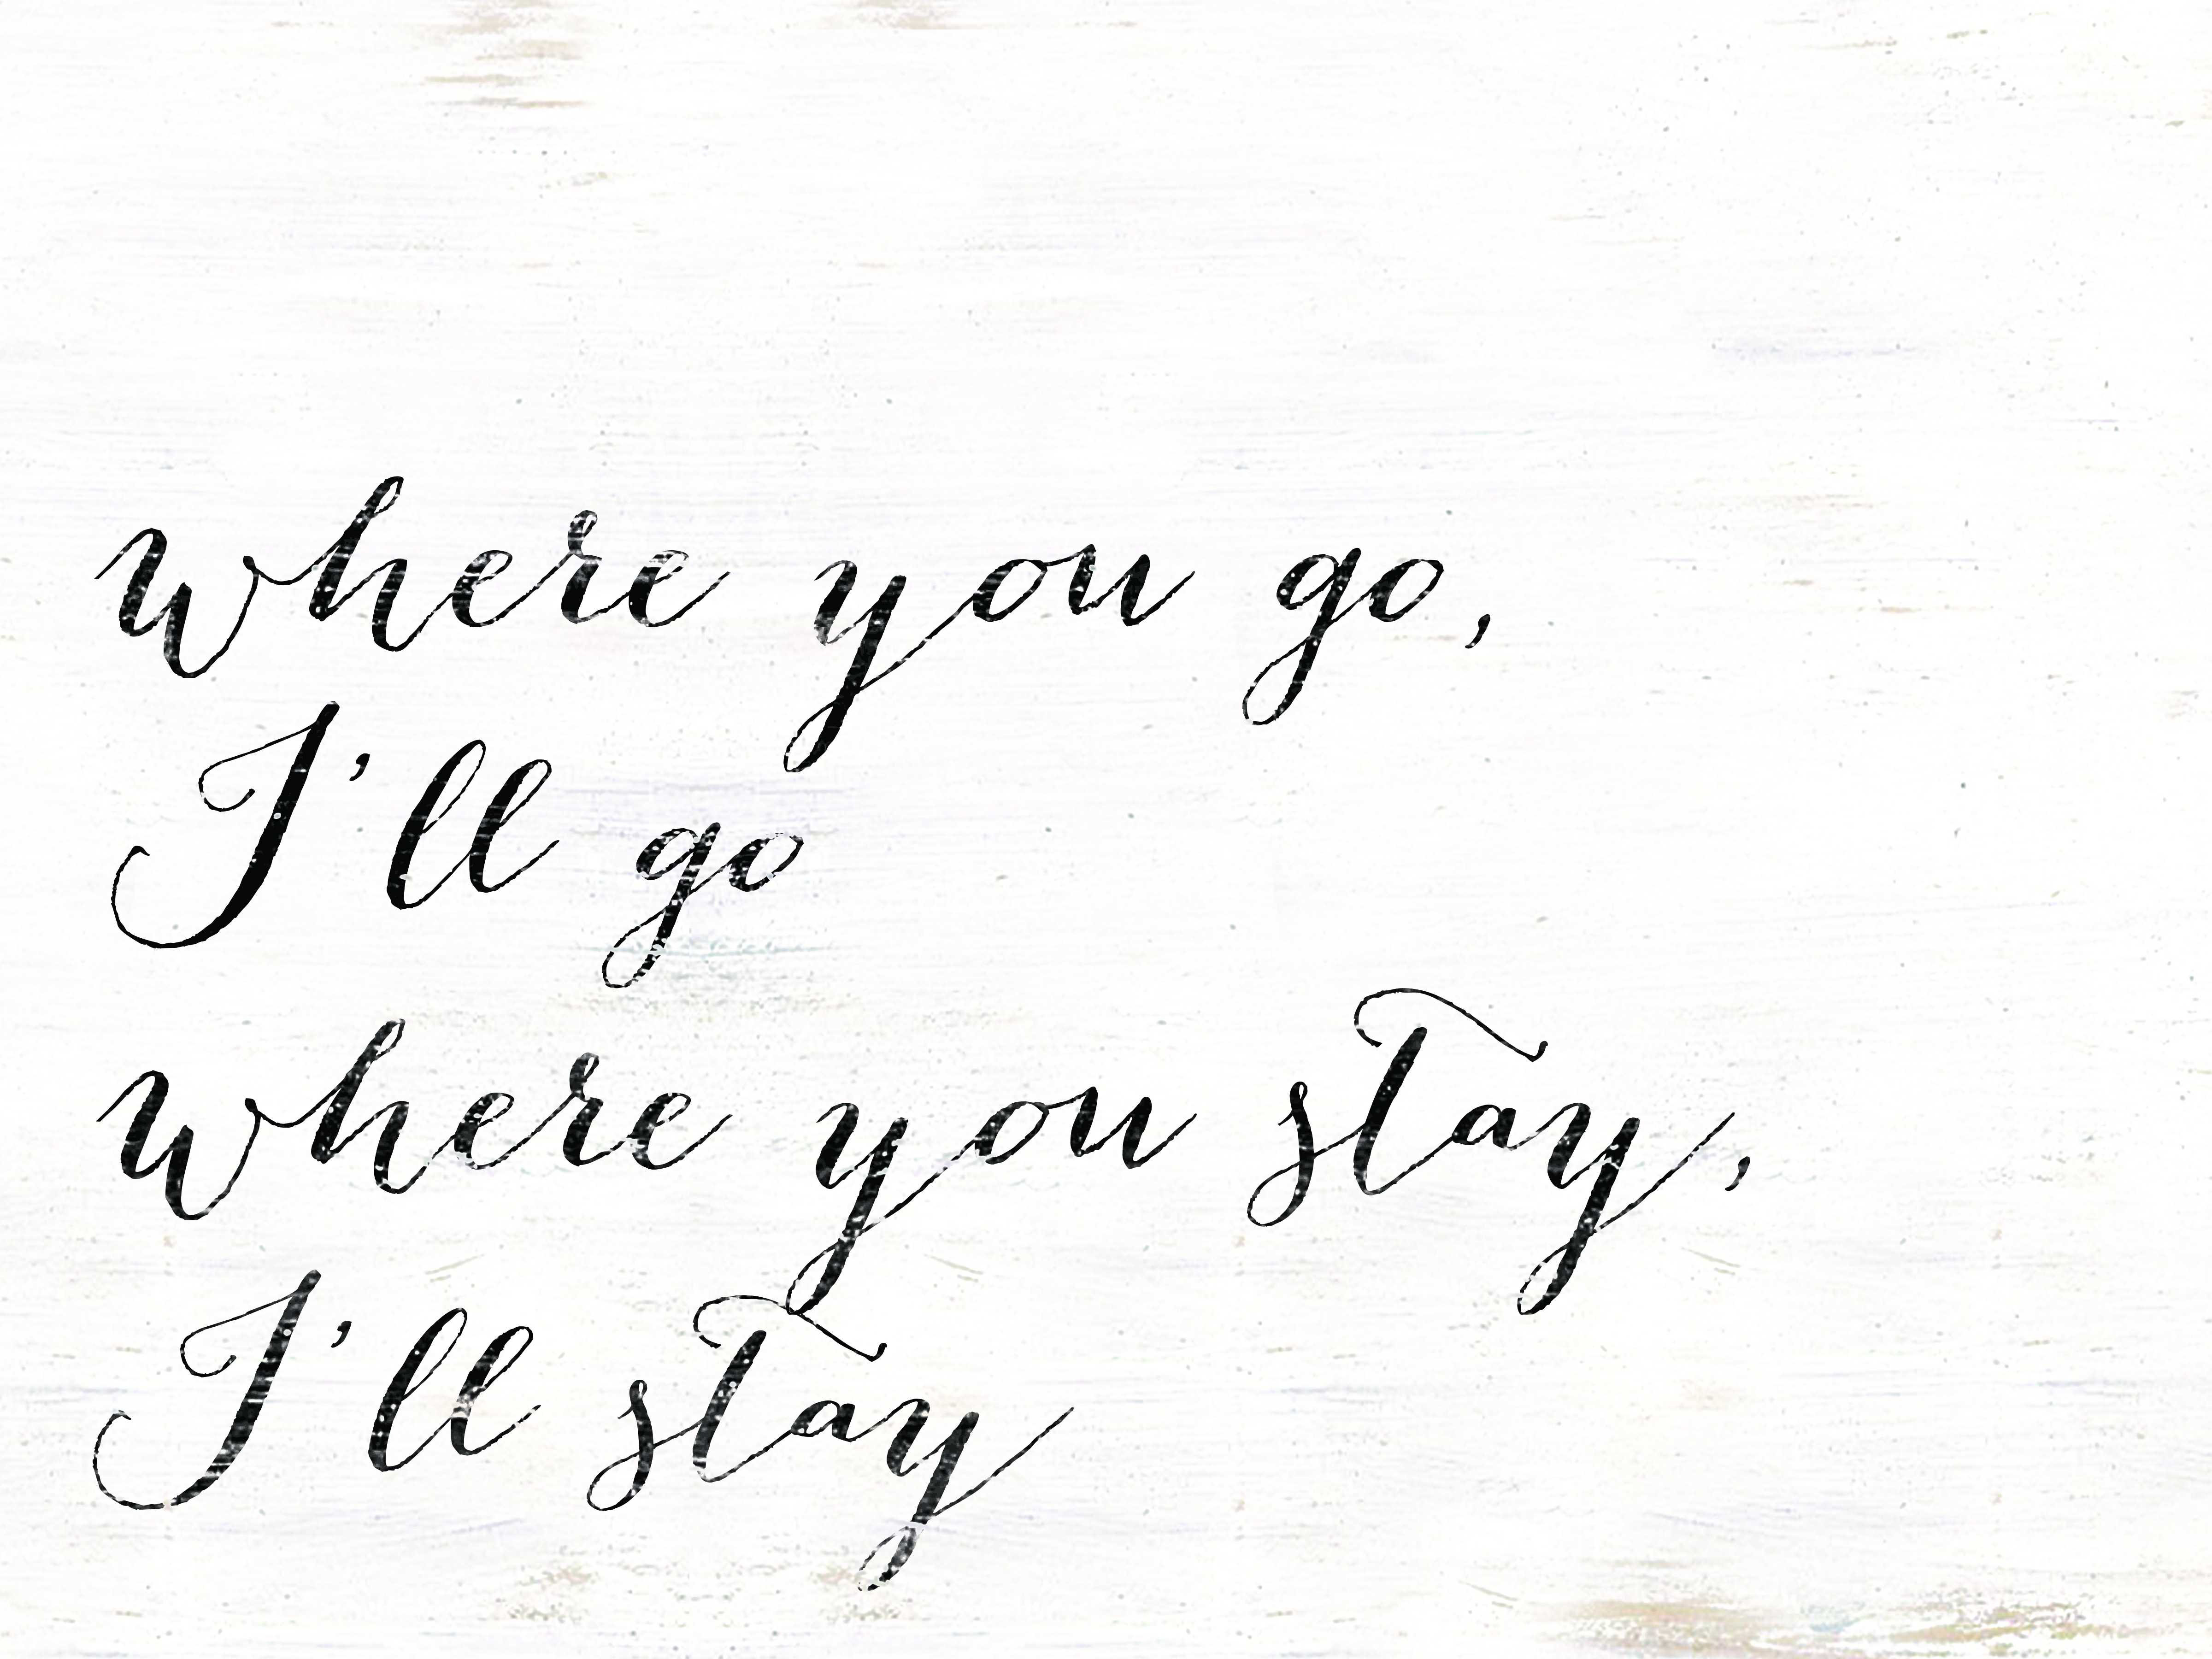 where you go,
I'll go
where you stay,
I'll stay